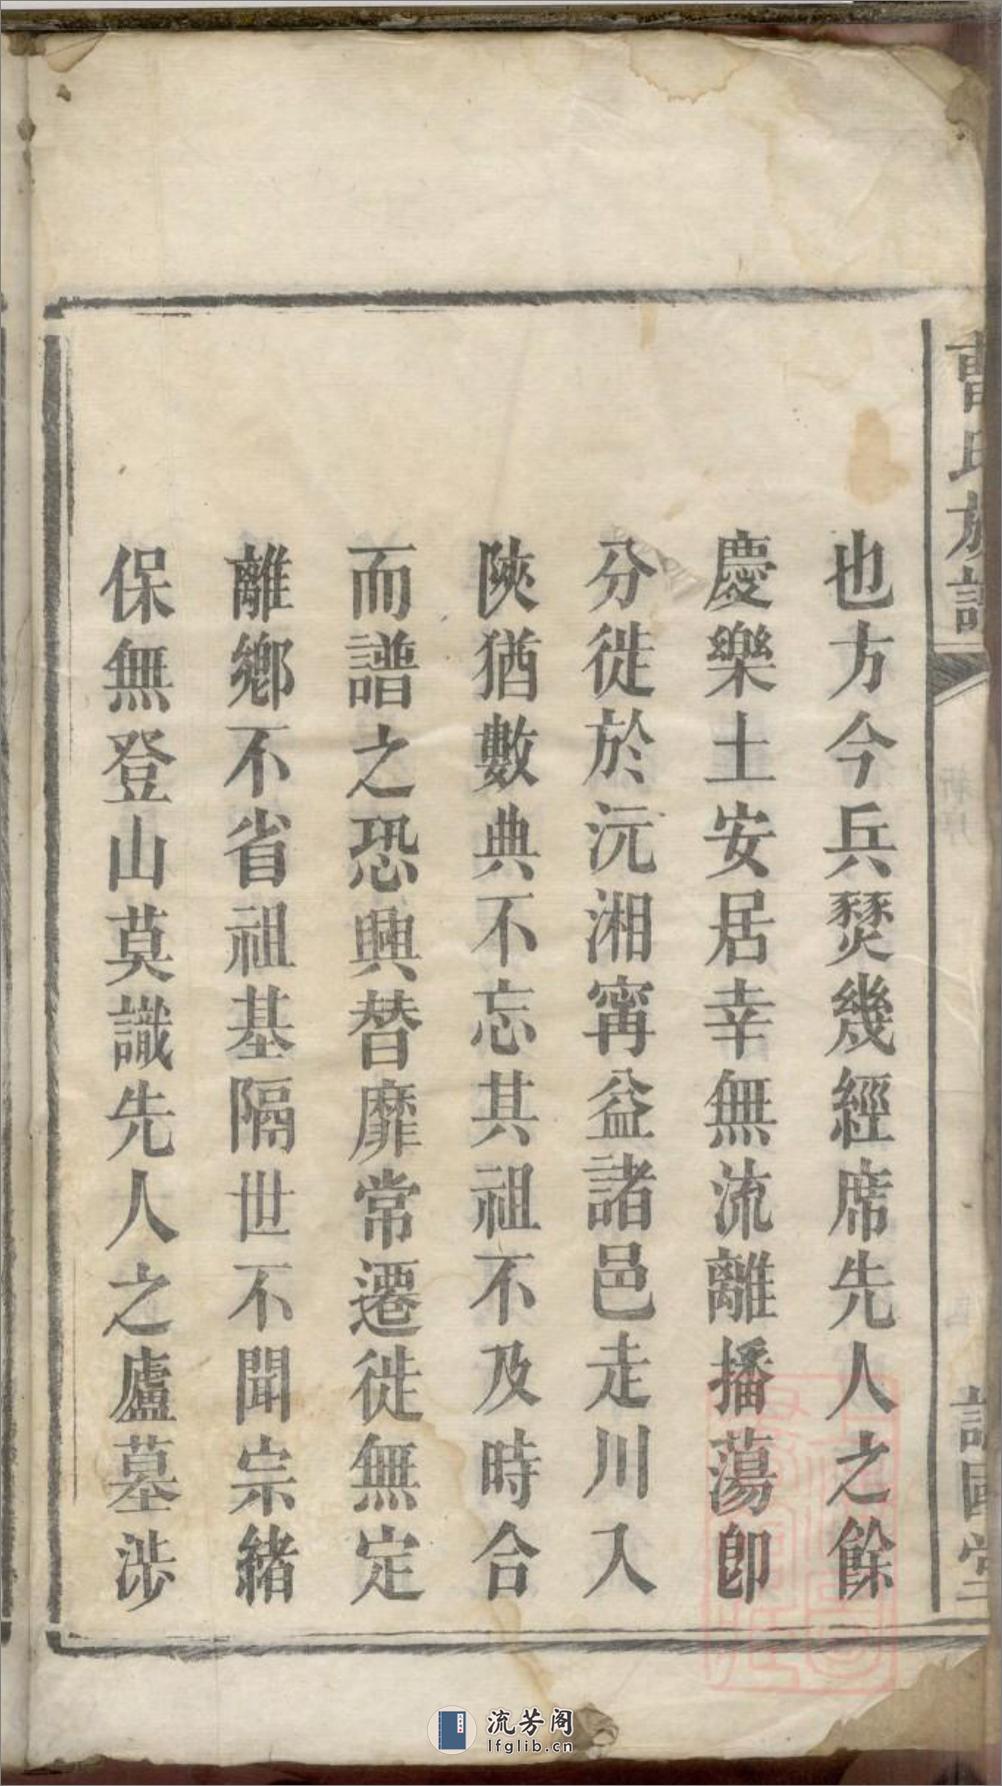 也方今兵燹幾經席先人之餘
慶樂土安居幸無流離播蕩卽
分徙於沅湘甯益諸邑走川入
陝猶數典不忘其祖不及時合
而譜之恐興替靡常遷徙無定
離鄉不省祖基隔世不聞宗緒
保無登山莫識先人之廬墓涉
曹氏族譜
流芳阁
lfglib.cn